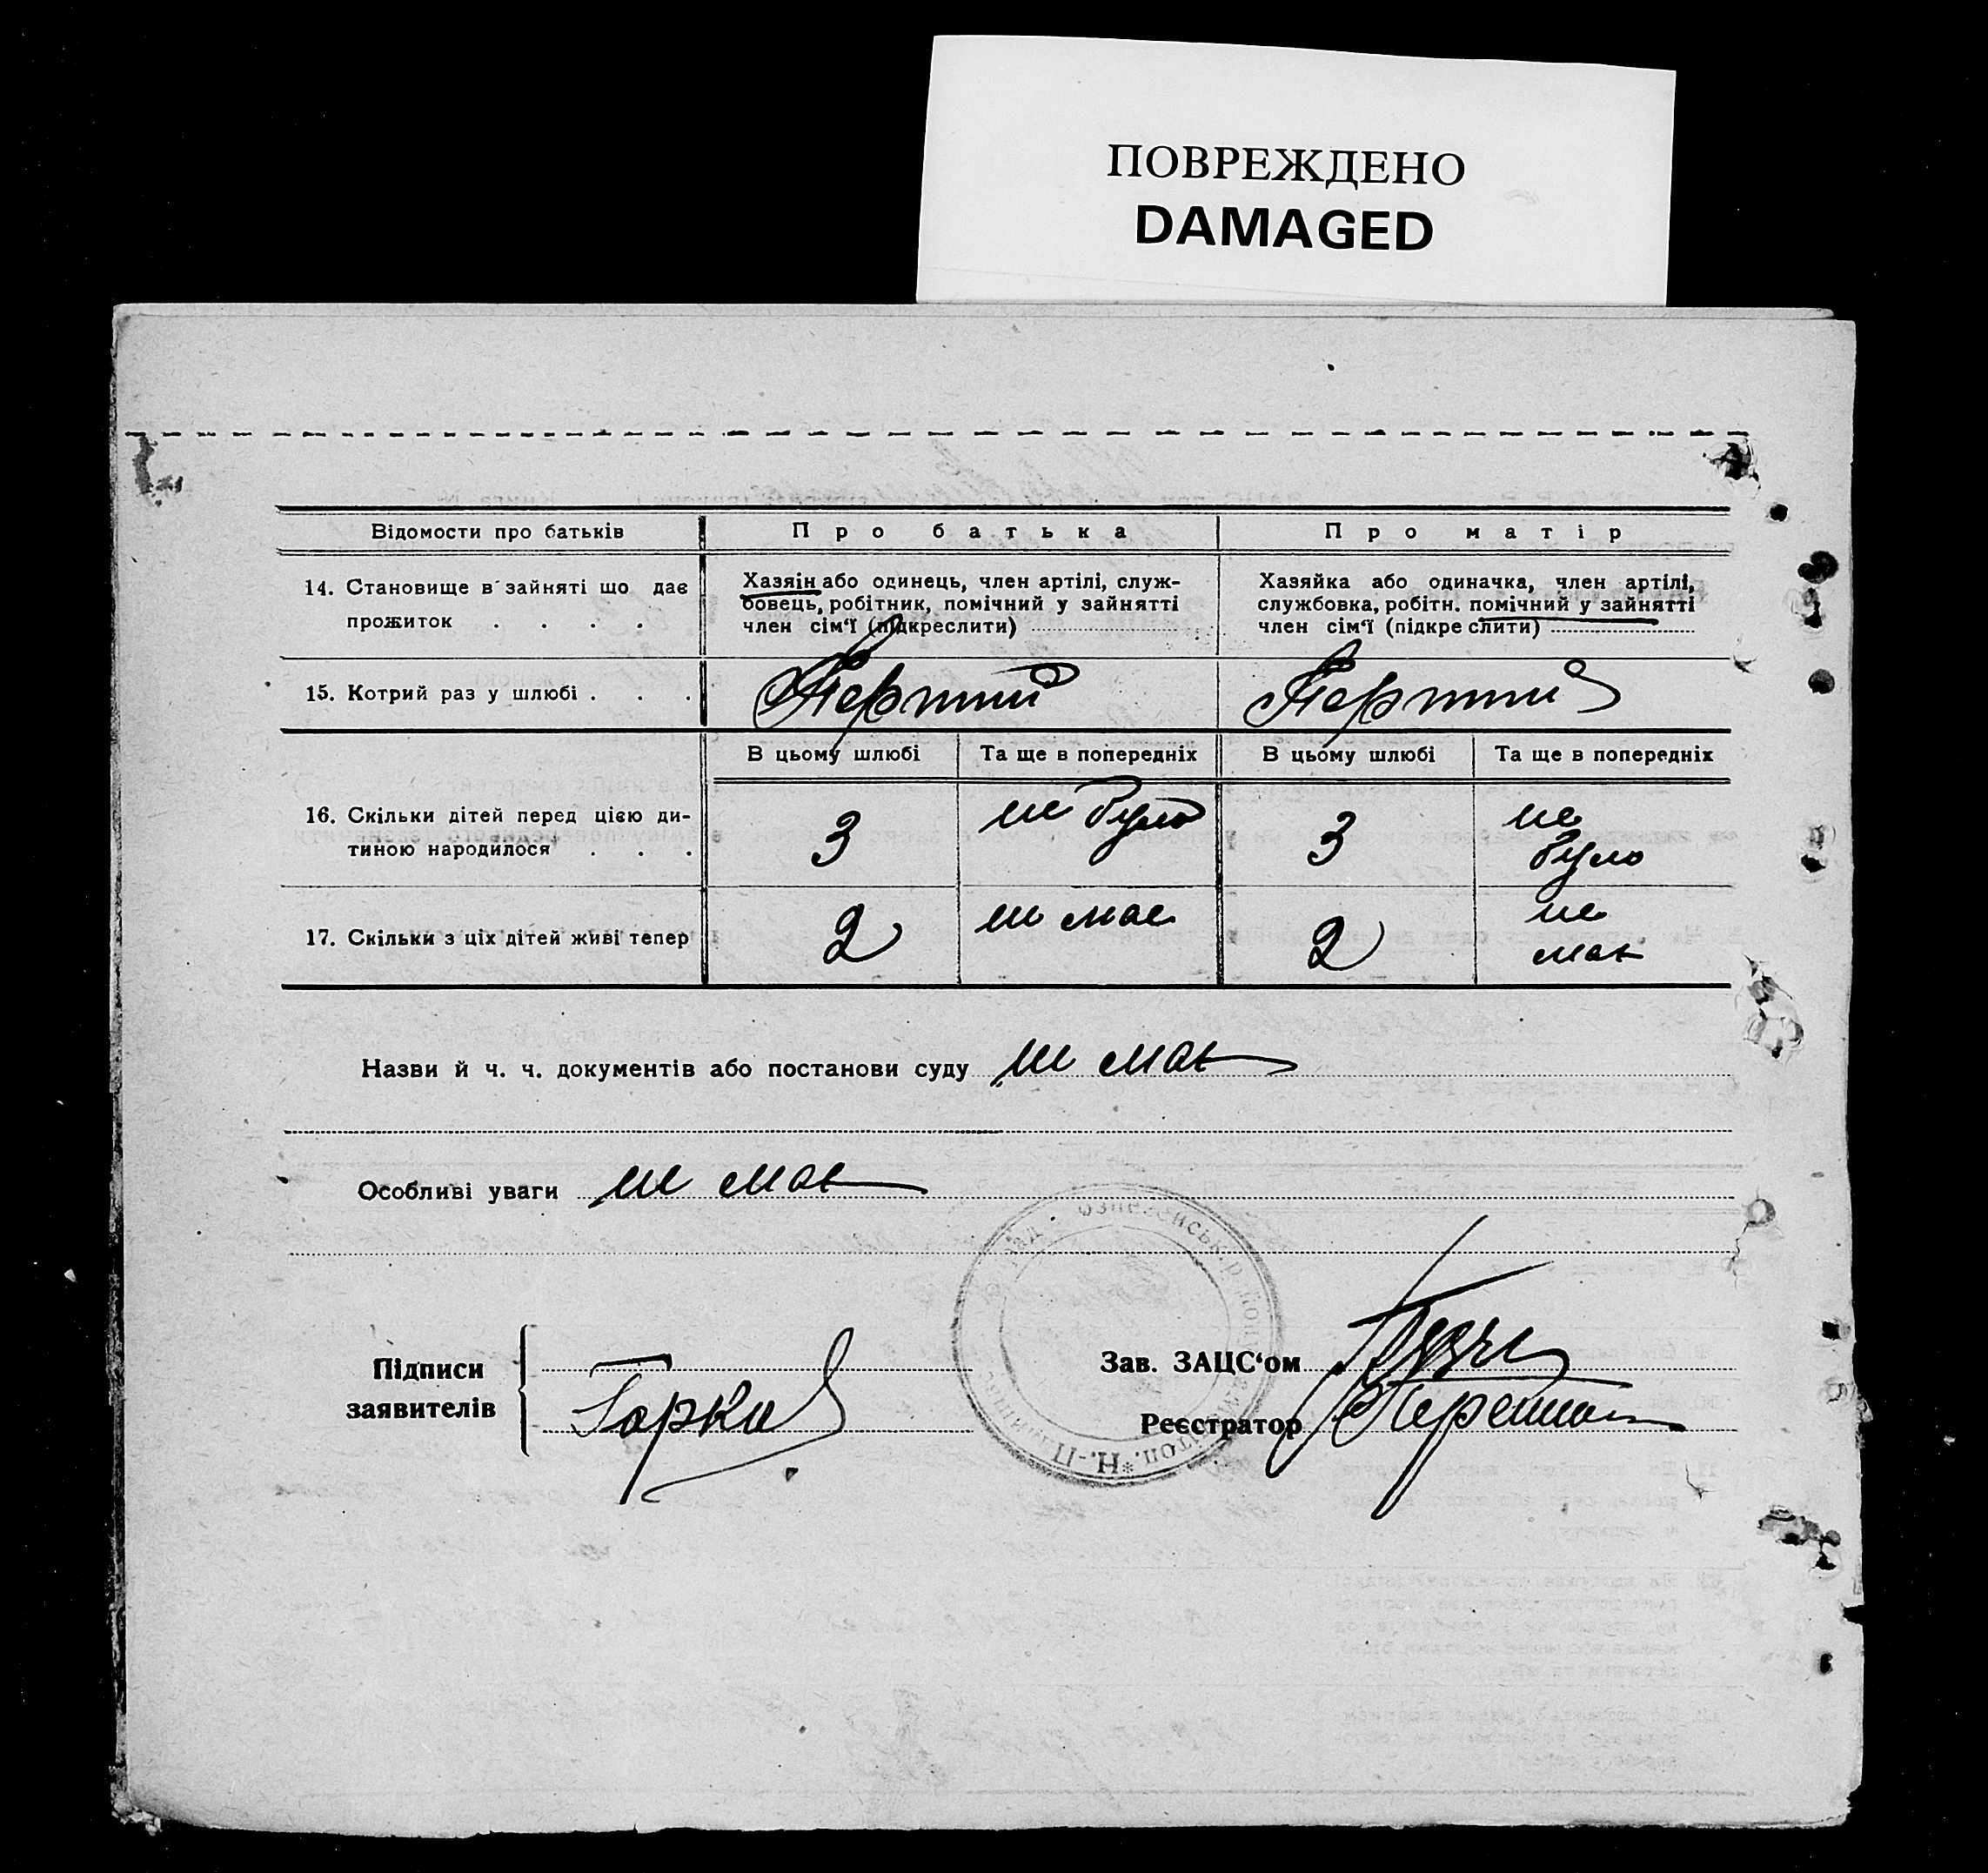 ПОВРЕЖДЕНО
DAMAGED
Відомости про батьків
Про батька
Про матір
14. Становище в зайняті що дає
прожиток . . . .
Хазяін або одинець, член артілі, служ-
бовець, робітник, помічний у зайнятті
член сім‘ї (підкреслити)
Хазяйка або одиначка, член артілі,
службовка, робітн. помічний у зайнятті
член сім‘ї (підкреслити)
15. Котрий раз у шлюбі . . .
Перший
Перший
В цьому шлюбі
Та ще в попередніх
В цьому шлюбі
Та ще в попередніх
16. Скільки дітей перед цією ди-
тиною народилося . . .
3
не було
3
не
було
17. Скільки з ціх дітей живі тепер
2
не має
2
не
має
Назви й ч. ч. документів або постанови суду не має
Особливі уваги не має
Підписи
заявителів
Зав. ЗАЦС‘ом
Реєстратор